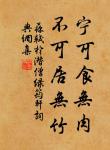 宁可食無肉
不可居無竹
蘇軾於潛僧綠筠軒詞
典網集